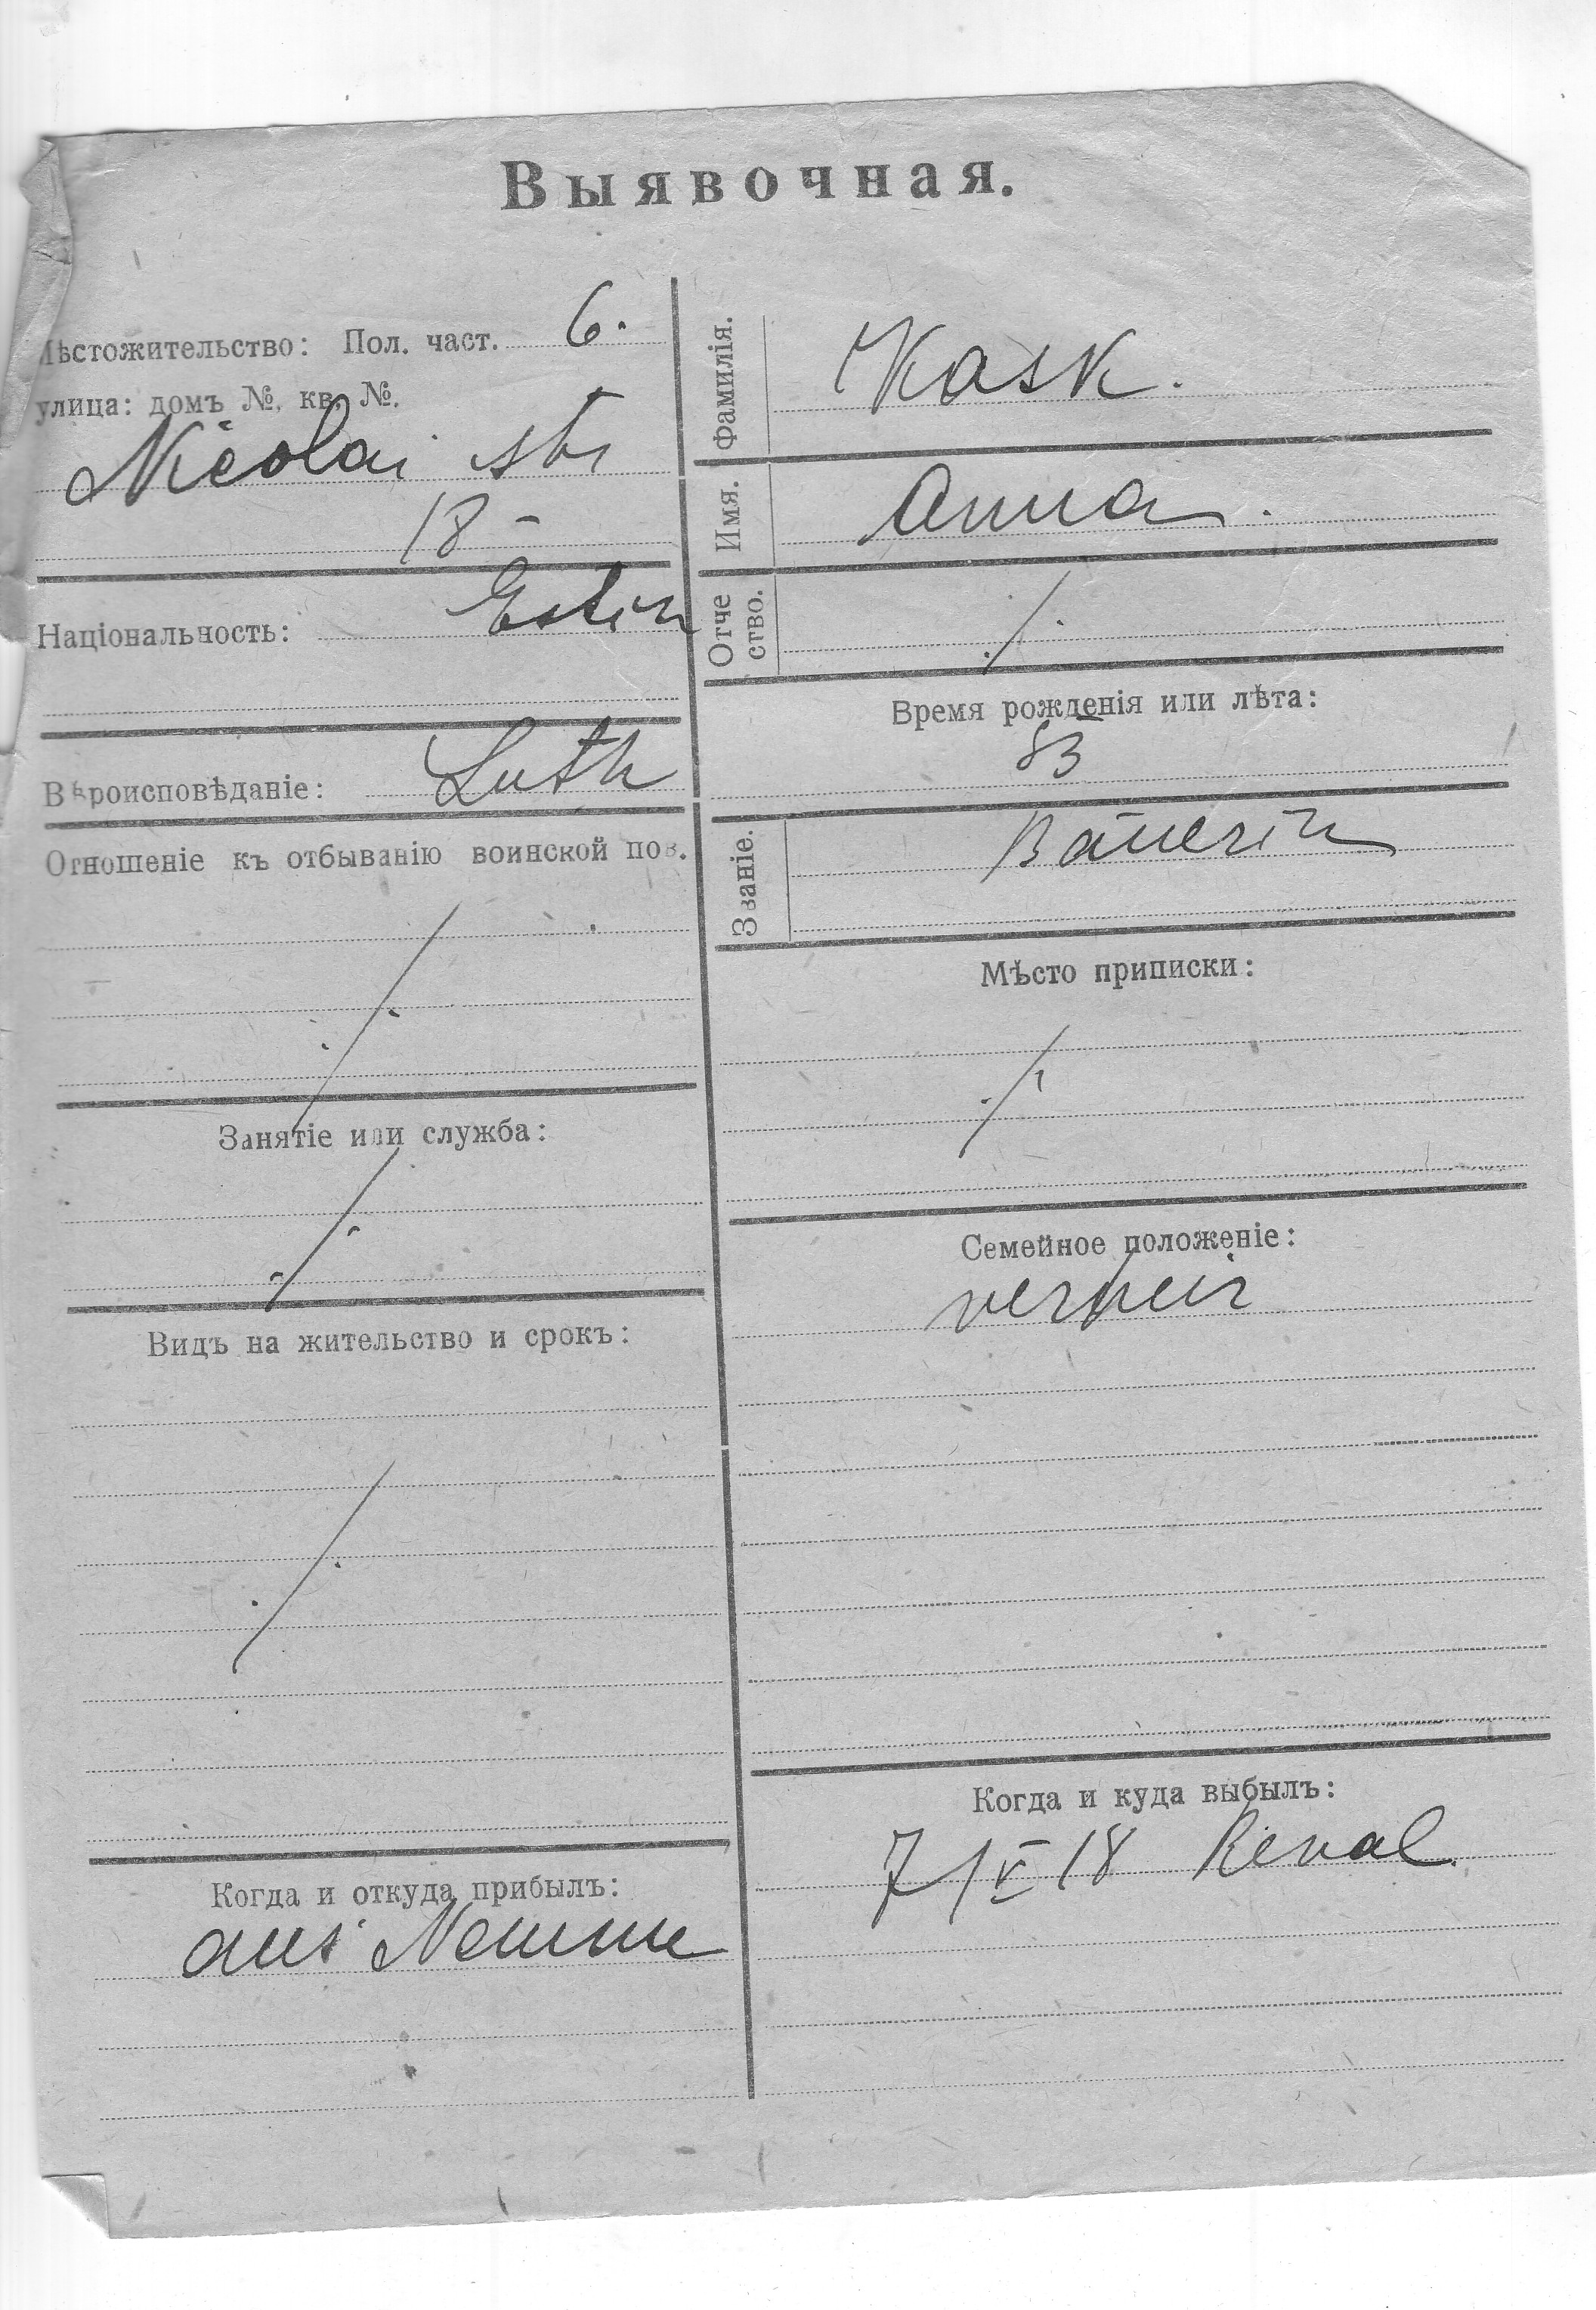 Выявочная.
Мѣстожительство: Пол. част. 6.
улица: домъ №, кв. №.
Nicolai str
18 -
Національность: Estin
Вѣроисповѣданіе: Luth
Отношеніе къ отбыванію воинской пов.
Занятіе или служба:
Видъ на жительство и срокъ:
Когда и откуда прибылъ:
aus Nemme
Фамилія. Kask.
Имя. Anna.
Отче
ство.
Время рожденія или лѣта:
83
Званіе. Bäuerin
Мѣсто приписки:
Семейное положеніе:
verheir
Когда и куда выбылъ:
7/V 18 Reval.